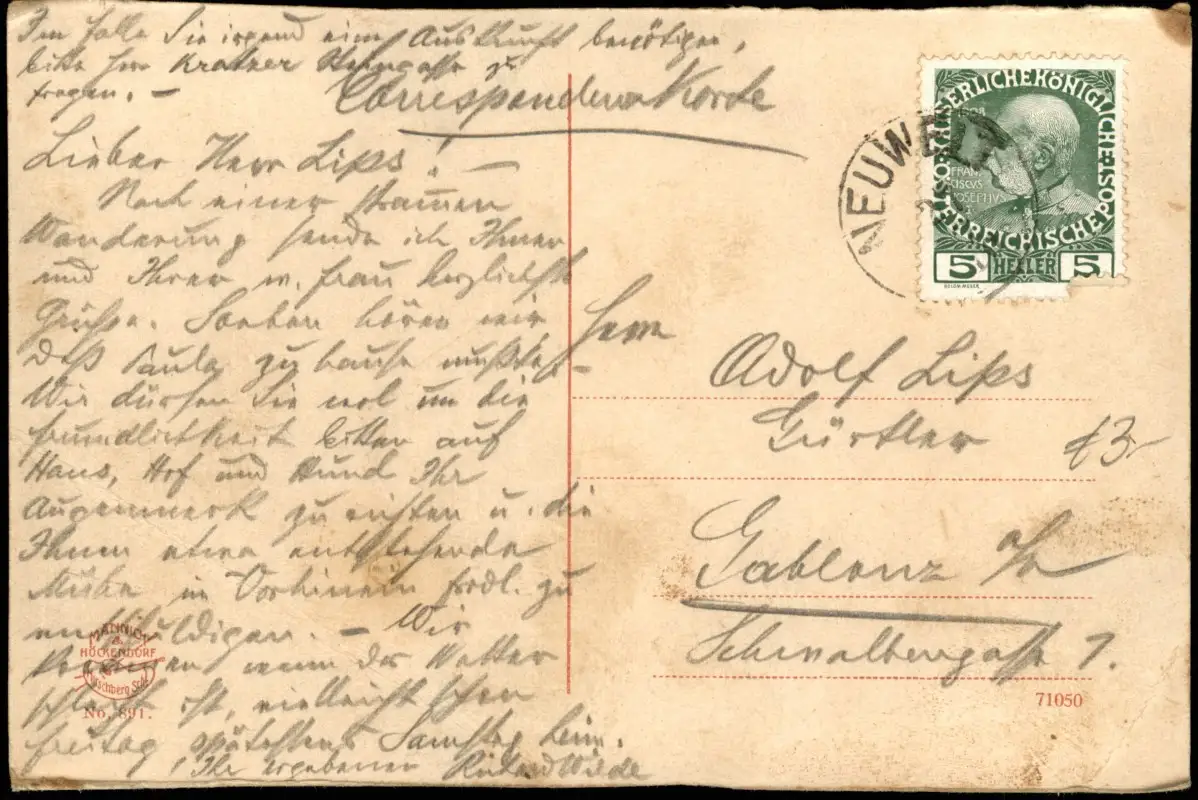 Im Falle Sie irgend eine Auskunft benötigen,
bitte Herr Kratzer zu
fragen. —
Correspondenz Karte
Lieber Herr Lips! —
Nach einer strammen
Wanderung sende ich Ihnen
und Ihrer w. Frau herzlichste
Grüsse. Soeben hören wir
daß Paula zu hause
Wir dürfen Sie wol um die
freundlichkeit bitten auf
Haus, Hof und Hund Ihr
Augenmerk zu richten u. die
Ihnen etwa entstehende
Mühe im Vorhinein frdl. zu
entschuldigen. — Wir
kommen wenn das Wetter
schlecht ist, vielleicht schon
freitag spätestens Samstag heim.
Ihr ergebener Richard Wilde
MÄNNICH
&
HÖCKENDORF
Hirschberg Schl.
No. 891.
KAISERLICHEKÖNIGLICHE
ÖSTERREICHISCHEPOST
1908
FRAN
CISCVS
IOSEPHVS
5 HELLER 5
NEUWELT
Herrn
Adolf Lips
Gürtler
Gablenz a/N
Schwalbengasse 7.
71050